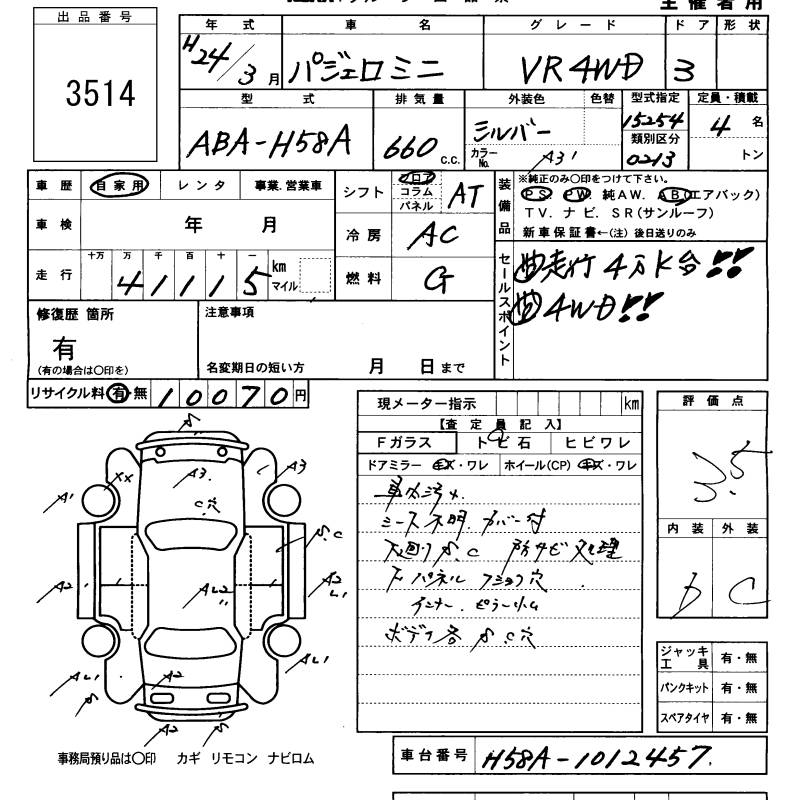 主催者用
出品番号
3514
年式 車名 グレード ドア 形状
H24/3月 パジェロミニ VR 4WD 3
型式 排気量 外装色 色替 型式指定 定員・積載
ABA-H58A 660 c.c. シルバー カラーNo. A31 15254 4名
類別区分
0213 トン
車歴 自家用 レンタ 事業.営業車
シフト フロア コラム パネル AT
装備品 ※純正のみ○印をつけて下さい。
PS. PW. 純AW. AB(エアバック)
TV. ナビ. SR(サンルーフ)
新車保証書←(注) 後日送りのみ
車検 年 月
冷房 AC
走行 十万 万 千 百 十 一 km マイル
41115
燃料 G
セールスポイント
走行4万K台!!
4WD!!
修復歴 箇所
有
(有の場合は○印を)
注意事項
名変期日の短い方 月 日まで
リサイクル料 有・無 10070円
現メーター指示 km
【査定員記入】
Fガラス トビ石 ヒビワレ
ドアミラー キズ・ワレ ホイール(CP) キズ・ワレ
車内汚れ.
シート不明. カバー付
下廻りS.C 防サビ処理
下パネル 穴
インナー. ピラー
ボディ各S.C穴
評価点
3.5
内装 外装
D C
ジャッキ工具 有・無
パンクキット 有・無
スペアタイヤ 有・無
S
A3
A3
XX
A1
C穴
S.C
A2
AL2
A2
L1
AL1
S
A2
AL1
A2
S
事務局預り品は○印 カギ リモコン ナビロム
車台番号 H58A-1012457.